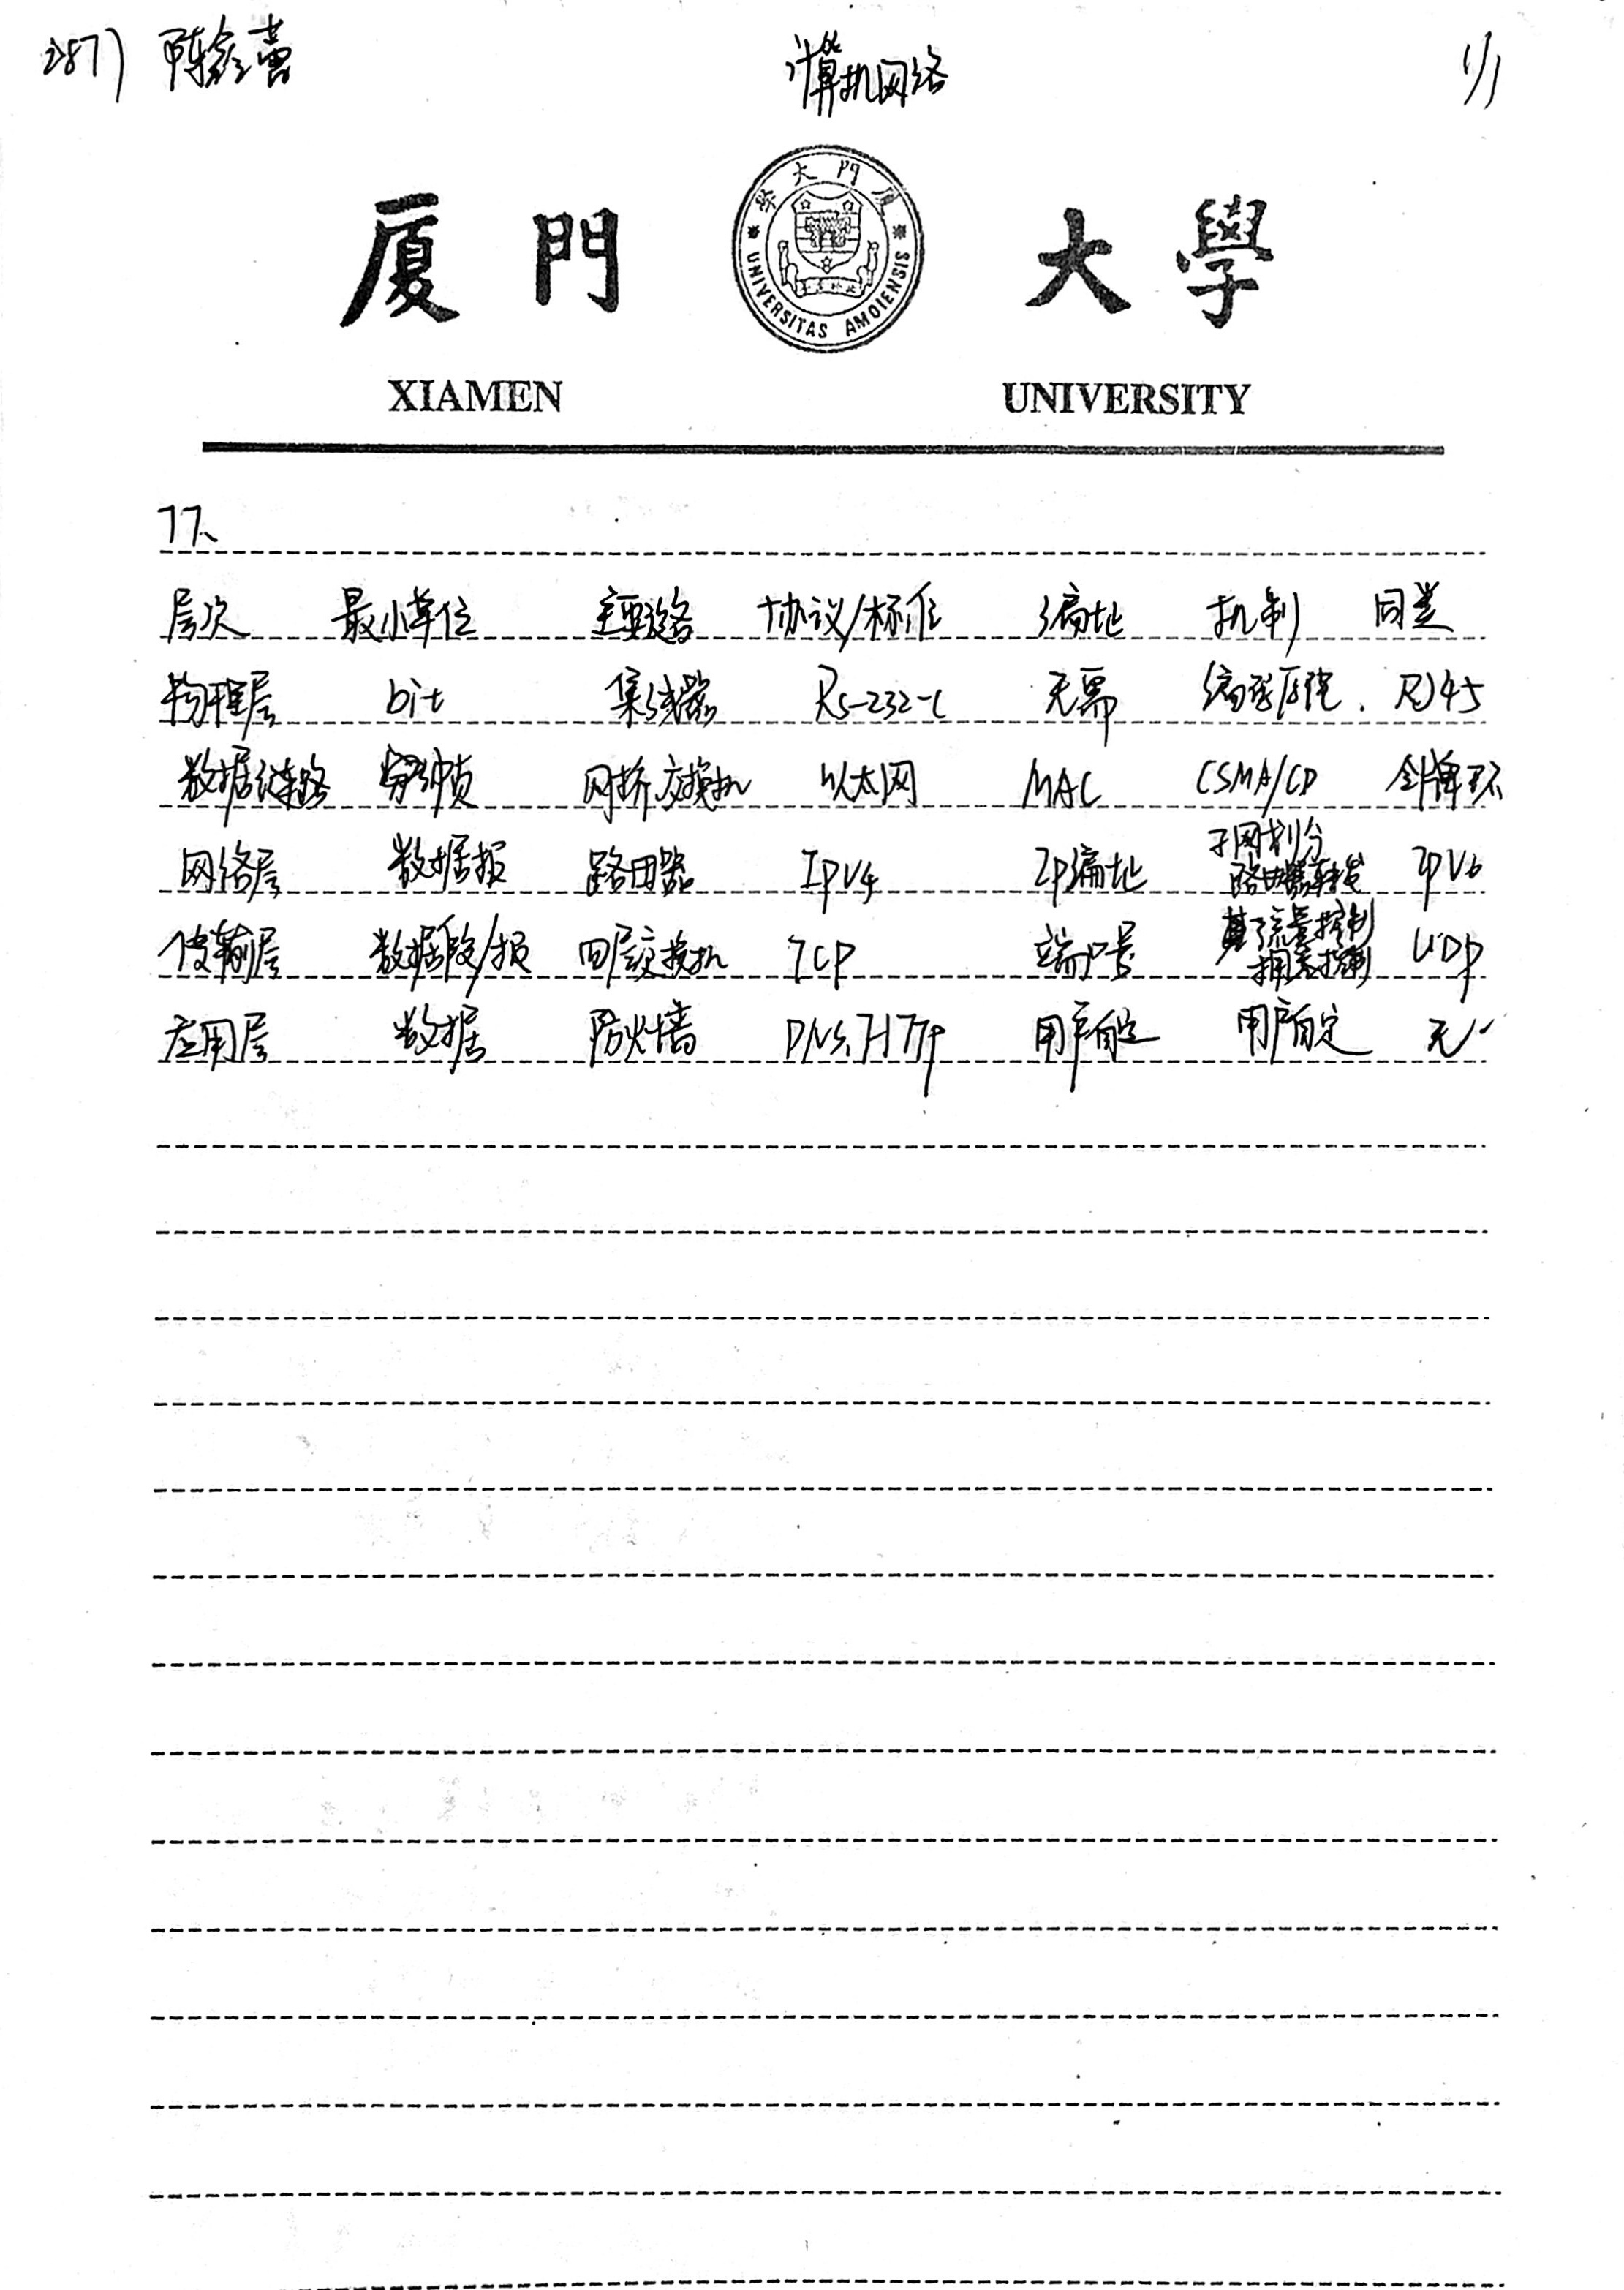 计算机网络
1/1
學大門厦
UNIVERSITAS AMOIENSIS
厦門大學
XIAMEN UNIVERSITY
17、
层次 最小单位 主要设备 协议/标准 编址 机制 同类
物理层 bit 集线器 RS-232-C 无需 RJ45
数据链路 帧 网桥 交换机 以太网 MAC CSMA/CD 令牌环
网络层 数据报 路由器 IPV4 IP编址 子网划分 路由器转发 IPV6
传输层 数据段/报 四层交换机 TCP 端口号 流量控制 拥塞控制 UDP
应用层 数据 防火墙 DNS、HTTP 用户自定 用户自定 无